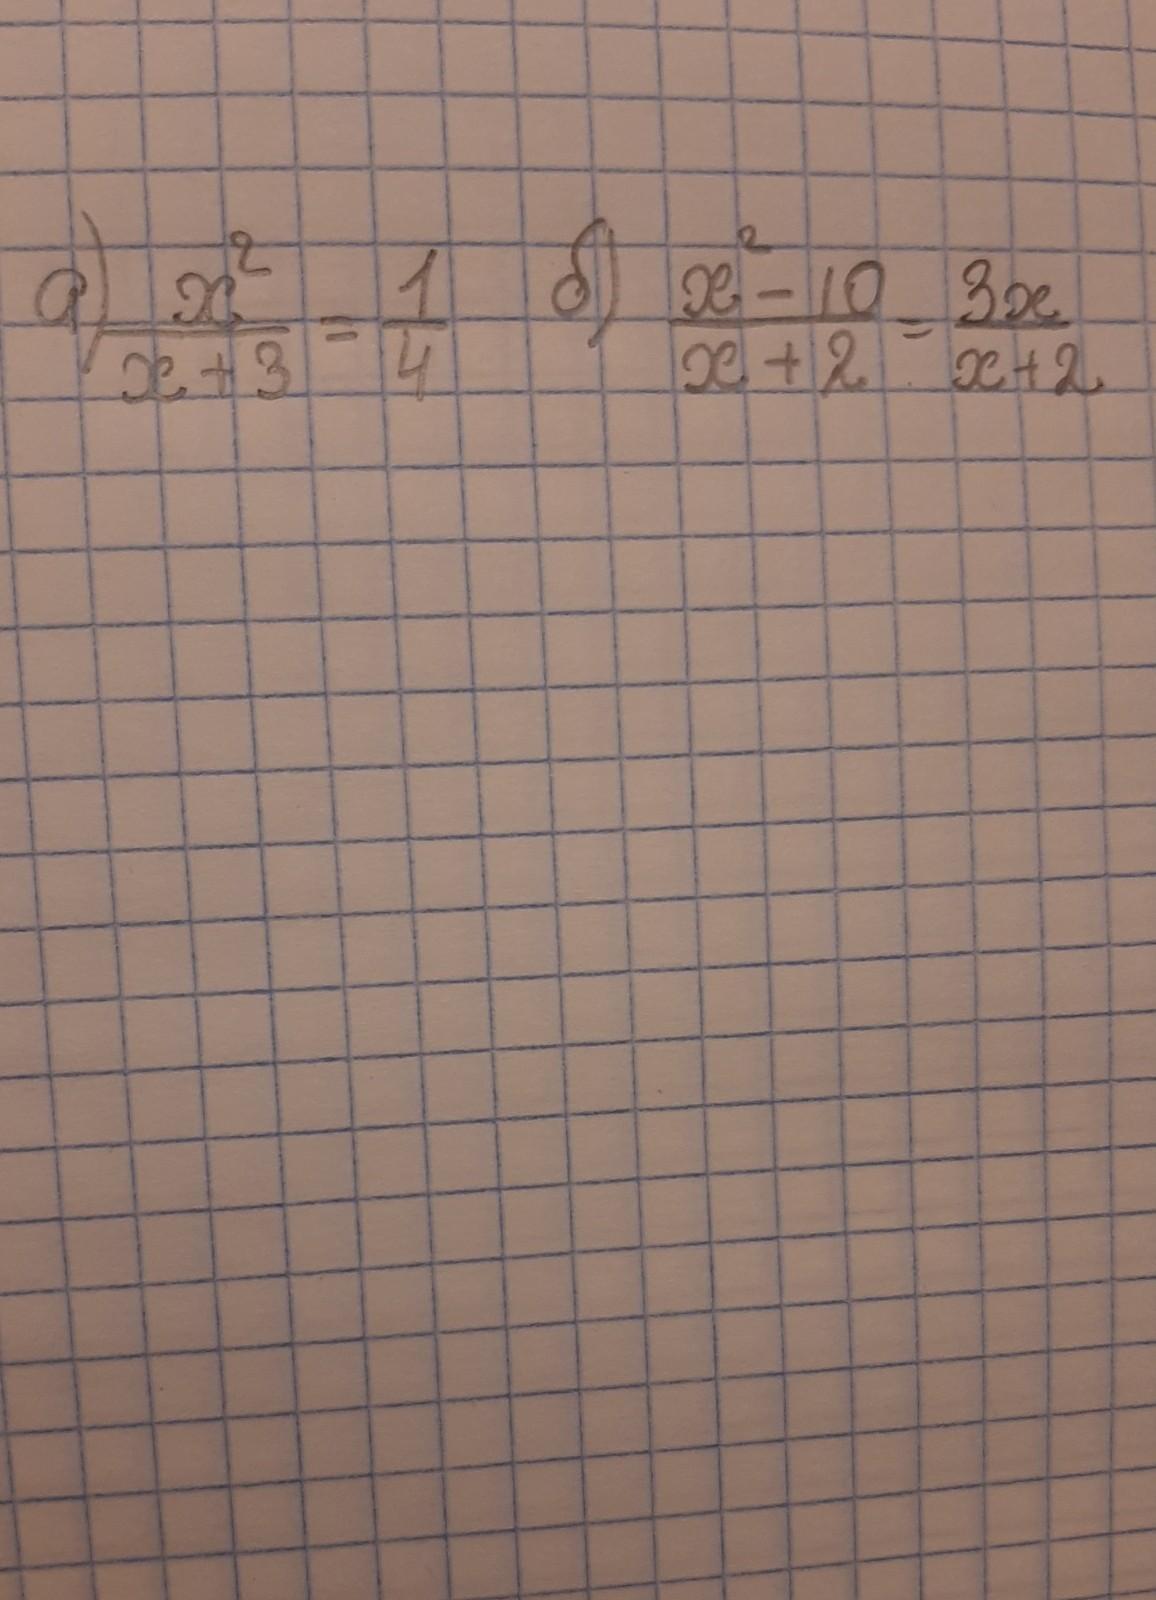 а) x²/(x + 3) = 1/4 б) (x² - 10)/(x + 2) = 3x/(x + 2)